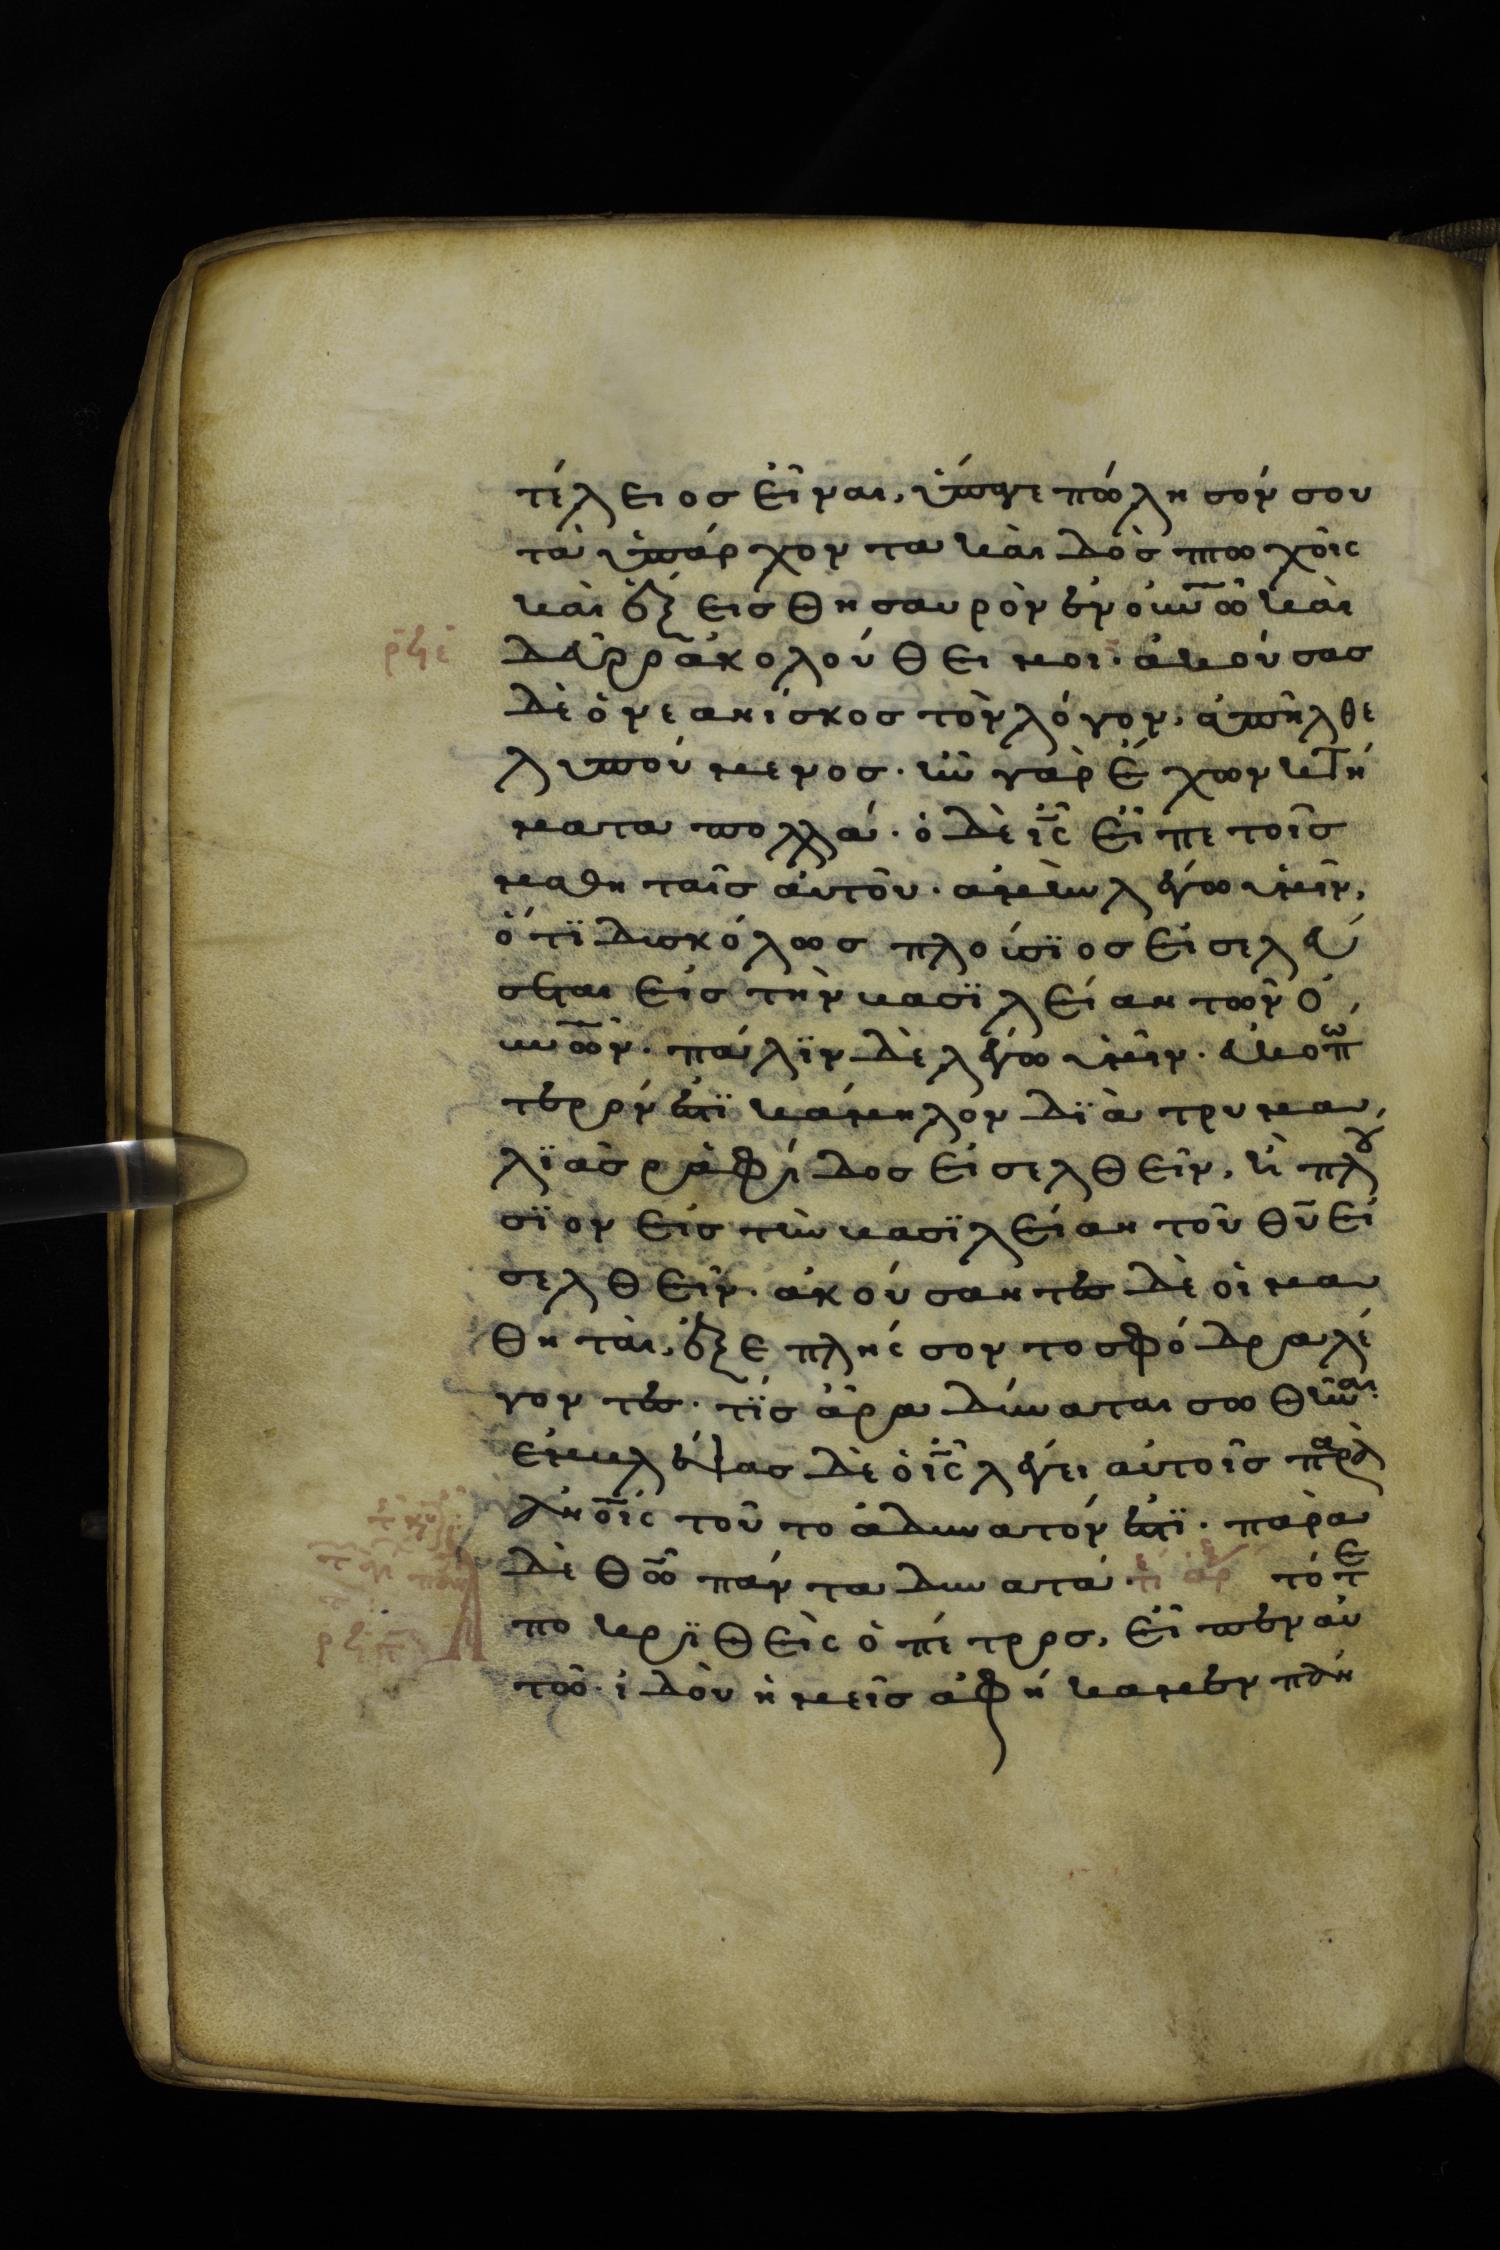 τέλειος εἶναι, ὕπαγε πώλησόν σου
τὰ ὑπάρχοντα καὶ δὸς πτωχοῖς
καὶ ἕξεις θησαυρὸν ἐν οὐν̅ῶ καὶ
δεῦρο ἀκολούθει μοι· ἀκούσας
δὲ ὁ νεανίσκος τὸν λόγον, ἀπῆλθε
λυπούμενος· ἦν γὰρ ἔχων κτή
ματα πολλά· ὁ δὲ ι̅ς̅ εἶπε τοῖς
μαθηταῖς αὐτοῦ· ἀμὴν λέγω ὑμῖν,
ὅτι δυσκόλως πλούσϊος εἰσελεύ
σεται εἰς τὴν βασϊλείαν τῶν ο
υν̅ῶν· πάλϊν δὲ λέγω ὑμῖν· εὐκοπώ
τερόν ἐστϊ κάμηλον δϊὰ τρυμα
λϊᾶς ῥαφίδος εἰσελθεῖν, ἢ πλου
σϊον εἰς τὴν βασϊλείαν τοῦ θ̅υ̅ εἰ
σελθεῖν· ἀκούσαντες δὲ οἱ μα
θηταὶ, ἐξεπλήσσοντο σφόδρα λέ
γοντες· τίς ἄρα δύναται σωθῆναι·
ἐμβλέψας δὲ ὁ ι̅ς̅ λέγει αὐτοῖς παρὰ
ἀν̅ο̅ις τοῦτο ἀδύνατόν ἐστϊ· παρὰ
δὲ θ̅ω̅ πάντα δυνατά τότε
ποκρϊθεὶς ὁ πέτρος, εἶπεν αὐ
τῶ· ἰδοὺ ἡμεῖς ἀφήκαμεν πάν